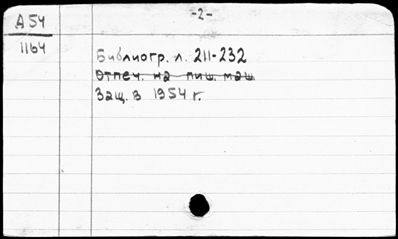 -2-
А 54
1164
Библиогр. л. 211-232
Отпеч. на пиш. маш.
Защ. в 1954 г.